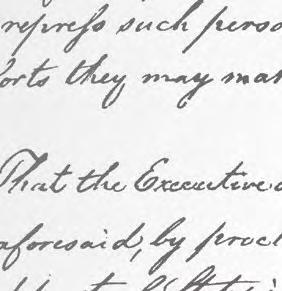 repress such perso
orts they may ma
That the Executive
aforesaid, by procl